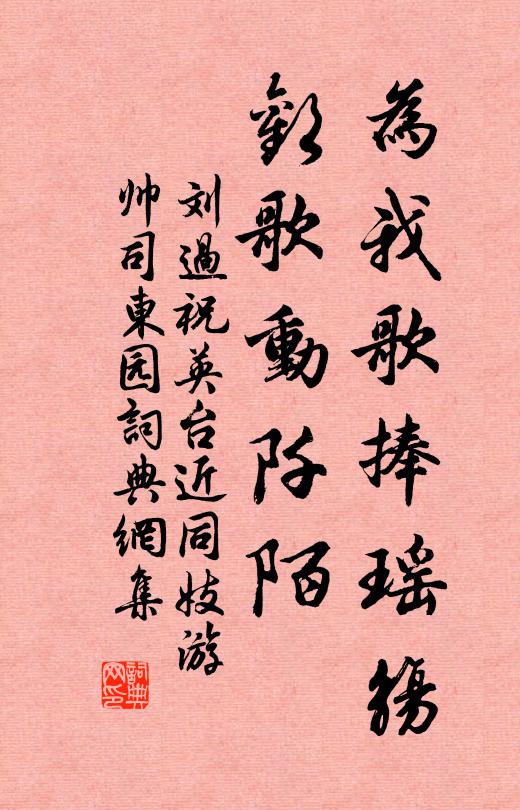 為我歌捧瑶觴
歡歌動阡陌
刘過祝英台近同妓游
帅司東园詞典網集
詞典网印